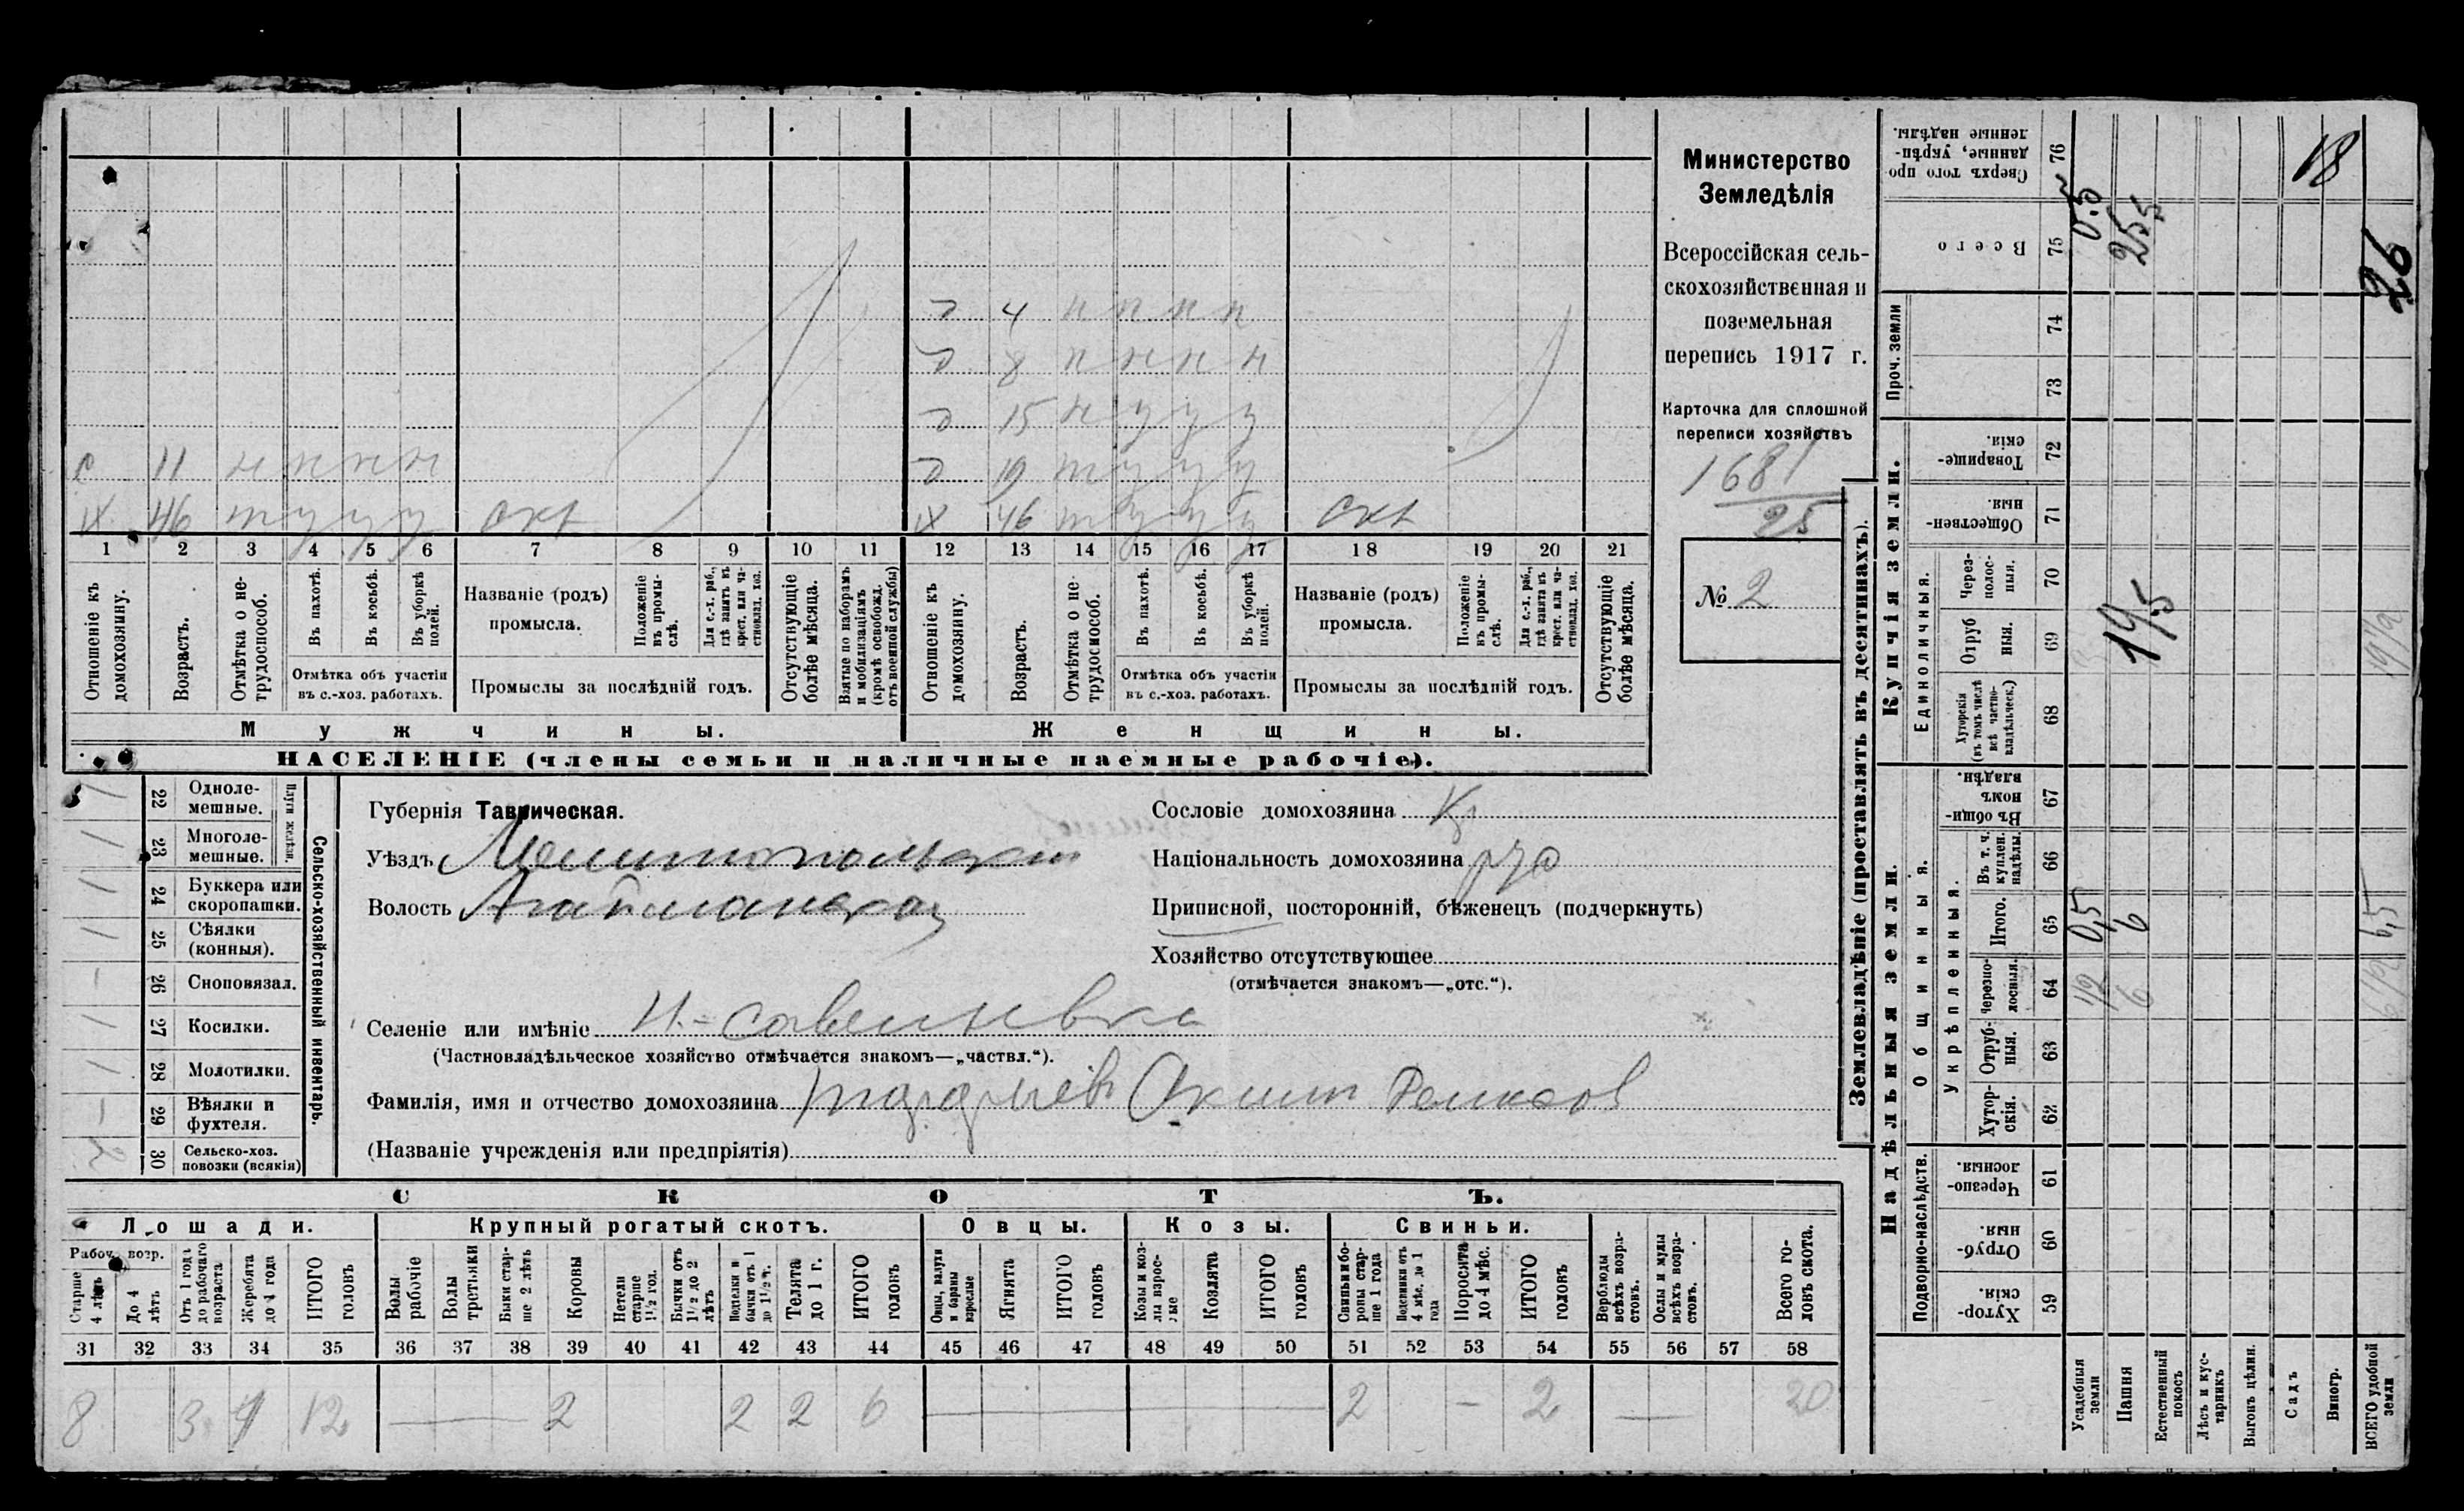 Министерство
Земледѣлія
Всероссійская сель-
скохозяйственная и
поземельная
перепись 1917 г.
Карточка для сплошной
переписи хозяйствъ
1681
25
№ 2
д 4 н н н н
д 8 н н н н
д 15 н у у у
с 11 н н н н
д 19 т у у у
х 46 т у у у скх
х 46 т у у у скх
1 2 3 4 5 6 7 8 9 10 11 12 13 14 15 16 17 18 19 20 21
Отношеніе къ домохозяину.
Возрастъ.
Отмѣтка о не-трудоспособ.
Въ пахотѣ.
Въ косьбѣ.
Въ уборкѣ полей.
Отмѣтка объ участіи
въ с.-хоз. работахъ.
Названіе (родъ)
промысла.
Положеніе въ промы-слѣ.
Для с.-х. раб., гдѣ занятъ въ крест. или ча-стновлад. хоз.
Промыслы за послѣдній годъ.
Отсутствующіе болѣе мѣсяца.
Взятые по наборамъ и мобилизаціямъ (кромѣ освобожд. отъ военной службы)
Отношеніе къ домохозяину.
Возрастъ.
Отмѣтка о не-трудоспособ.
Въ пахотѣ.
Въ косьбѣ.
Въ уборкѣ полей.
Отмѣтка объ участіи
въ с.-хоз. работахъ.
Названіе (родъ)
промысла.
Положеніе въ промы-слѣ.
Для с.-х. раб., гдѣ занята въ крест. или ча-стновлад. хоз.
Промыслы за послѣдній годъ.
Отсутствующіе болѣе мѣсяца.
Мужчины.
Женщины.
НАСЕЛЕНІЕ (члены семьи и наличные наемные рабочіе).
Сельско-хозяйственный инвентарь.
Плуги желѣзн.
1 22 Одноле-мешные.
1 23 Многоле-мешные.
1 24 Буккера или скоропашки.
1 25 Сѣялки (конныя).
– 26 Сноповязал.
1 27 Косилки.
1 28 Молотилки.
– 29 Вѣялки и фухтеля.
2 30 Сельско-хоз. повозки (всякія)
Губернія Таврическая.
Уѣздъ Мелитопольскій
Волость
Сословіе домохозяина Кр
Національность домохозяина рус
Приписной, посторонній, бѣженецъ (подчеркнуть)
Хозяйство отсутствующее
(отмѣчается знакомъ—„отс.“).
Селеніе или имѣніе
(Частновладѣльческое хозяйство отмѣчается знакомъ—„частвл.“).
Фамилія, имя и отчество домохозяина
(Названіе учрежденія или предпріятія)
СКОТЪ.
Лошади.
Крупный рогатый скотъ.
Овцы.
Козы.
Свиньи.
Рабоч. возр.
Старше 4 лѣтъ
До 4 лѣтъ
Отъ 1 года до рабочаго возраста
Жеребята до 1 года
ИТОГО головъ
Волы рабочіе
Волы третьяки
Быки стар-ше 2 лѣтъ
Коровы
Нетели старше 1½ год.
Бычки отъ 1½ до 2 лѣтъ
Подтелки и бычки отъ 1 до 1½ г.
Телята до 1 г.
ИТОГО головъ
Овцы, валухи и бараны взрослые
Ягнята
ИТОГО головъ
Козы и коз-лы взрос-лые
Козлята
ИТОГО головъ
Свиньи и бо-ровы стар-ше 1 года
Подсвинки отъ 4 мѣс. до 1 года
Поросята до 4 мѣс.
ИТОГО головъ
Верблюды всѣхъ возра-стовъ.
Ослы и мулы всѣхъ возра-стовъ.
Всего го-ловъ скота.
31 32 33 34 35 36 37 38 39 40 41 42 43 44 45 46 47 48 49 50 51 52 53 54 55 56 57 58
8 3 1 12 — 2 2 2 6 — 2 – 2 — 20
Землевладѣніе (проставлять въ десятинахъ).
Надѣльныя земли.
Купчія земли.
Проч. земли
Подворно-наслѣдств.
Общинныя.
Укрѣпленныя.
Единоличныя.
Хутор-скія. 59
Отруб-ныя. 60
Черезпо-лосныя. 61
Хутор-скія. 62
Отруб-ныя. 63
Черезпо-лосныя. 64
Итого. 65
Въ т. ч. куплен. надѣлы. 66
Въ общи-номъ владѣн. 67
Хуторскія (въ томъ числѣ всѣ частно-владѣльческ.) 68
Отруб ныя. 69
Через-полос-ныя. 70
Обществен-ныя. 71
Товарище-скія. 72
73
74
Всего 75
Сверхъ того про данные, укрѣп-ленные надѣлы. 76
Усадебныя земли 1/2 0,5 0.5
Пашня 6 6 19,5 25,5
Естественный покосъ
Лѣсъ и кус-тарникъ
Выгонъ цѣлин.
Садъ
Виногр.
ВСЕГО удобной земли 6 1/2 6,5 19 1/2 26
18